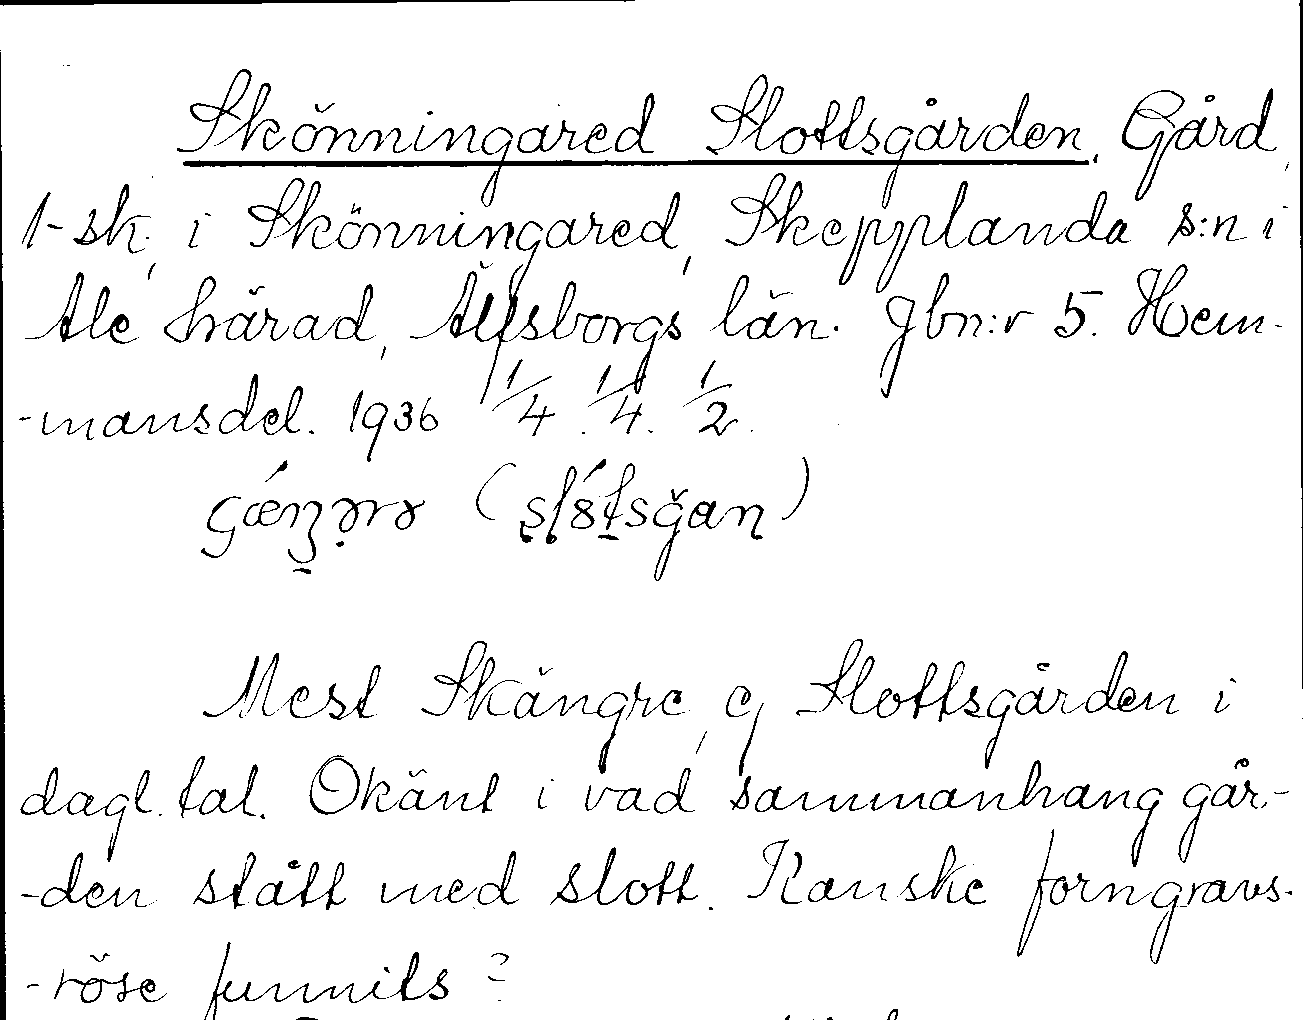 Skönningared Slottsgården. Gård,
1-sk., i Skönningared, Skepplanda s:n i
Ale härad, Älfsborgs län. Jbn:r 5. Hem-
-mansdel. 1936 1/4. 1/4. 1/2.
Mest Skängre, ej Slottsgården i
dagl. tal. Okänt i vad sammanhang går-
-den stått med slott. Kanske forngravs-
-röse funnits?